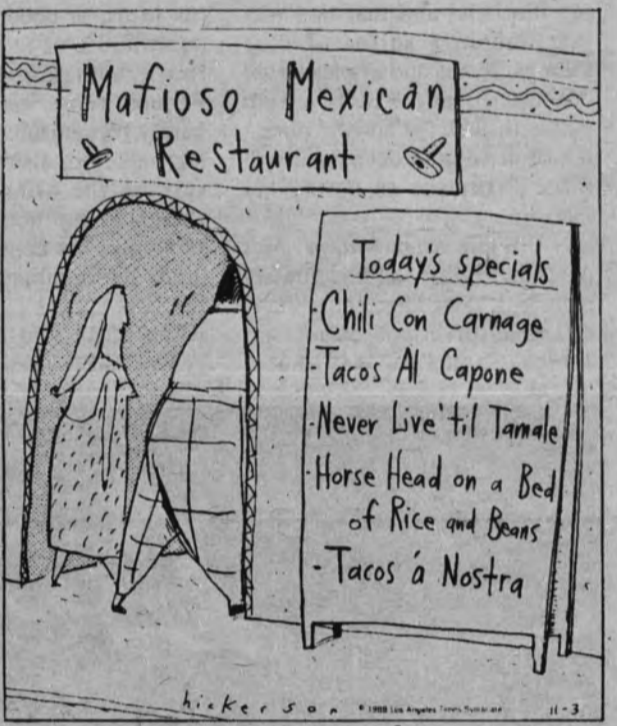 Mafioso Mexican
Restaurant
Today's specials
- Chili Con Carnage
- Tacos Al Capone
- Never Live til Tamale
- Horse Head on a Bed
of Rice and Beans
- Tacos á Nostra
hickerson © 1988 Los Angeles Times Syndicate 11-3